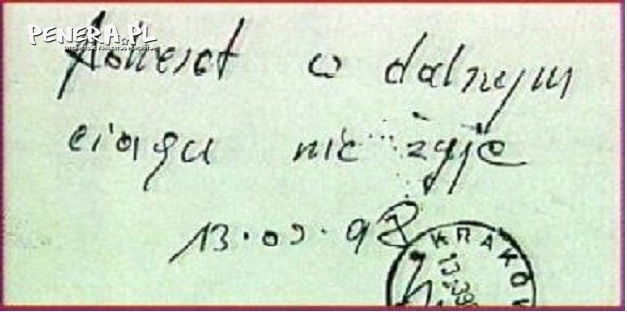 PENERA.PL
Adresat w dalnym
ciągu nie żyje
13.03.98
KRAKÓW